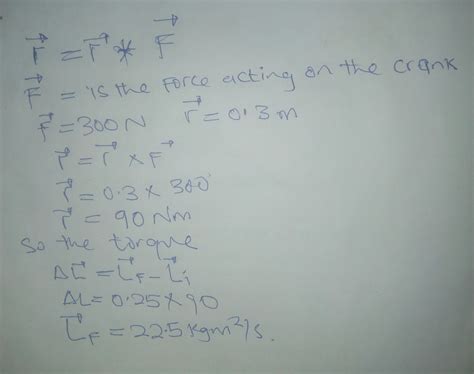 τ⃗ = r⃗ * F⃗
F⃗ = is the force acting on the crank
F⃗ = 300N r⃗ = 0.3m
τ⃗ = r⃗ × F⃗
τ⃗ = 0.3 × 300
τ⃗ = 90 Nm
So the torque
ΔL⃗ = L⃗F - L⃗i
ΔL = 0.25 × 90
L⃗F = 22.5 kgm²/s.